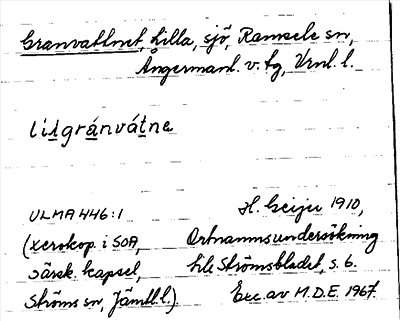 Granvattnet, Lilla, sjö, Ramsele sn,
Ångermanl. v. tg, Vrnl. l.
lislgránvátne
ULMA 446:1 H. Geijer 1910,
(xerokop. i SOA, Ortnamnsundersökning
särsk. kapsel, till Strömsbladet, s. 6.
Ströms sn, Jämtl. l.) Exc. av M.D.E. 1967.